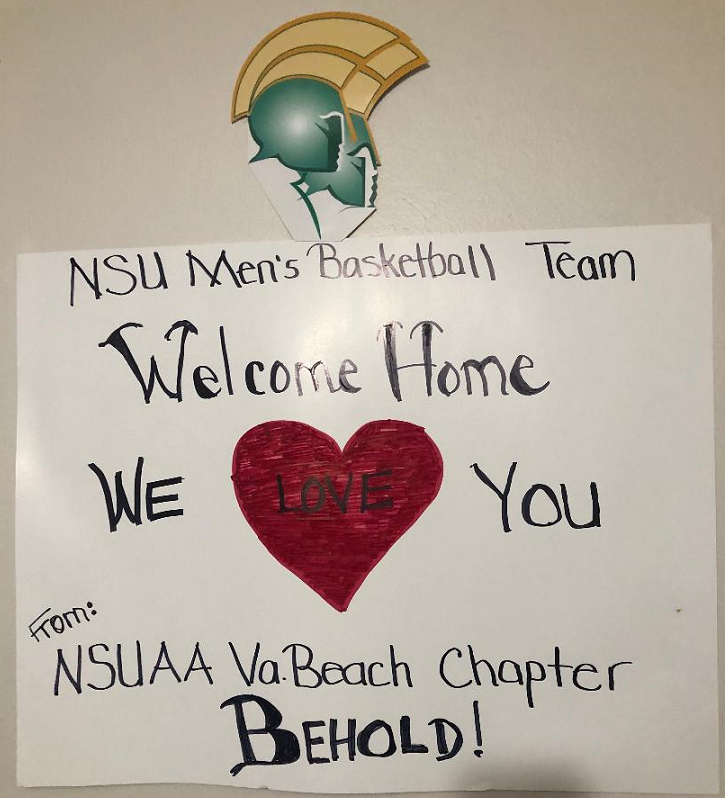 NSU Men's Basketball Team
Welcome Home
WE LOVE YOU
From:
NSUAA Va.Beach Chapter
BEHOLD!